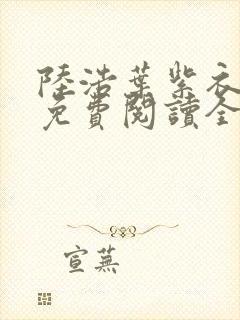 陸浩葉紫衣
免費閱讀全
宣蕪